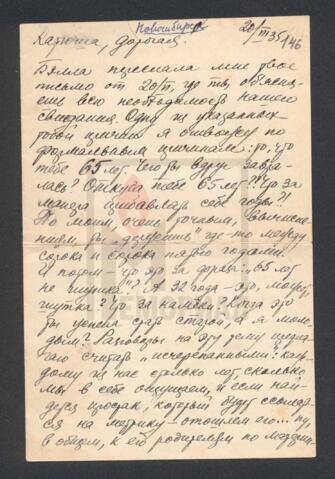 Новосибирск
20/III 35 146
Катюша, дорогая.
Бэлла переслала мне твое
письмо от 20/II, где ты объясня-
ешь всю необходимость нашего
свидания. Одну из указанных
тобой причин я отвожу по
формальным причинам: то, что
тебе 65 лет. Чего вдруг завра-
лась? Откуда тебе 65 лет? Что за
манера прибавлять себе годы?!
По моим, очень точным, вычисле-
ниям, ты где-то между
сорока и сорока годами.
И потом – что это за фраза: "65 лет
не шутка"? А 32 года – это, может,
шутка? Что за намеки? Когда это
ты успела стать старой, а я моло-
дым? Разговоры на эту тему предла-
гаю считать "исчерпанными": каж-
дому из нас столько лет, сколько
мы в себе ощущаем, и если най-
дется простак, который будет ссылать-
ся на метрику – отошлем его... ну,
в общем, к его родителям по